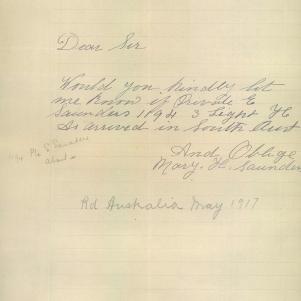 Dear Sir
Would you kindly let
me know if Private E
Saunders 1894 3 Light H
Is arrived in South Aust
And Oblige
Mary H. Saunders
Rd Australia May 1917